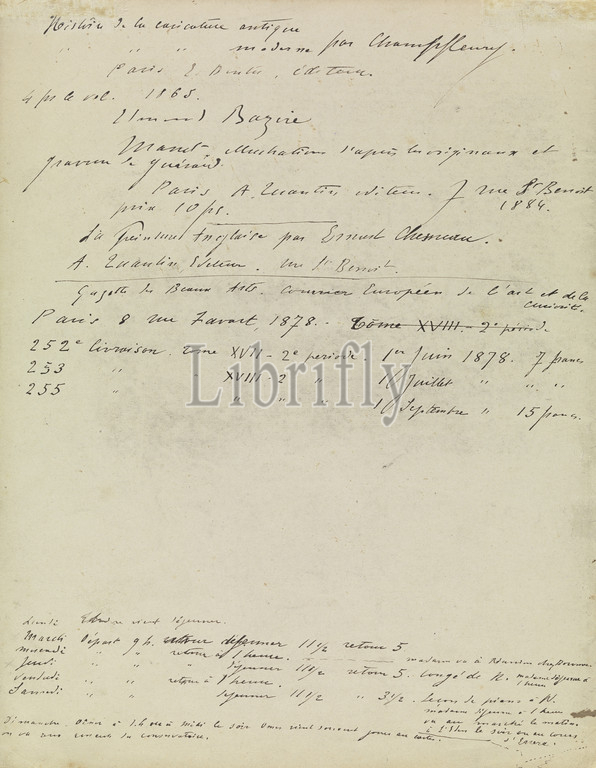 Histoire de la caricature antique
" " " " moderne par Champfleury.
Paris E. Dentu, éditeur.
4 frs le vol. 1865.
Edmond Bazire
Manet illustrations d'après les originaux et
gravure de Guérard.
Paris A. Quantin editeur. 7 rue St Benoit
prix 10 frs. 1884.
La Peinture Anglaise par Ernest Chesneau.
A. Quantin Editeur. rue St Benoit.
Gazette des Beaux Arts. Courrier Européen de l'art et de la
curiosité.
Paris 8 rue Favart, 1878. - Tôme XVIII. - 2e période
252e livraison. tome XVII - 2e periode. 1er Juin 1878. 7 francs
253 " XVIII - 2 " 1/ Juillet " " "
255 " " " " 1/ Septembre " 15 francs.
Librifly
Lundi vient déjeuner.
Mardi Départ 9 h. retour dejeuner 11 1/2 retour 5
mercredi " " retour à 1 heure. madame va à
Jeudi " " déjeuner 11 1/2 retour 5. congé de R. madame déjeune à
1 heure
Vendredi " " retour à 1 heure.
Samedi " " dejeuner 11 1/2 " 3 1/2. Leçon de piano à
madame déjeune à 1 heure
ou au marché le matin
le soir ou au cours
Dimanche. à midi le soir vient
ou va au concert du conservatoire.